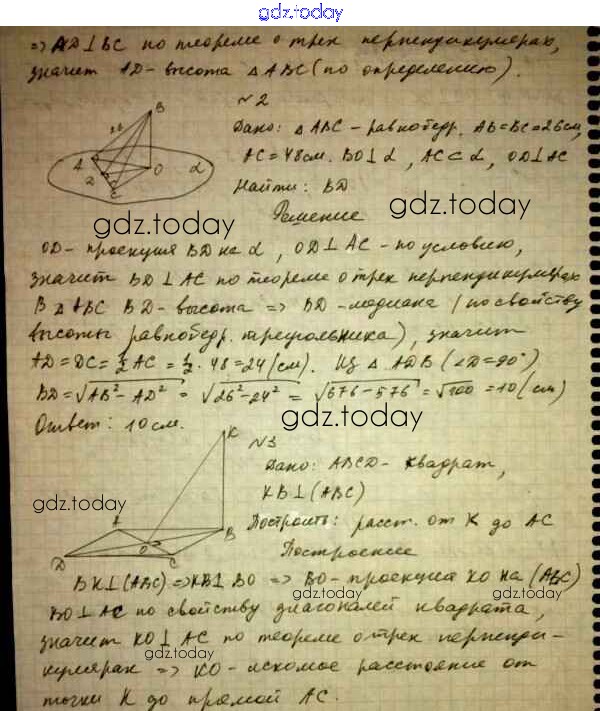 gdz.today
=> AD⊥BC по теореме о трех перпендикулярах,
значит AD - высота △ABC (по определению).
№2
B
26
A
D
C
O
α
Дано: △ABC - равнобедр. AB=BC=26см,
AC=48см. BO⊥α, AC⊂α, OD⊥AC
Найти: BD
gdz.today
gdz.today
Решение
OD - проекция BD на α, OD⊥AC - по условию,
значит BD⊥AC по теореме о трех перпендикулярах
В △ABC BD - высота => BD - медиана (по свойству
высоты равнобедр. треугольника), значит
AD=DC=½AC=½·48=24(см). Из △ADB (∠D=90°)
BD=√AB²-AD² = √26²-24² = √676-576 = √100 = 10(см)
Ответ: 10см.
gdz.today
№3
K
Дано: ABCD - квадрат,
KB⊥(ABC)
gdz.today
Построить: расст. от K до AC
A
B
O
D
C
Построение
BK⊥(ABC) => KB⊥BO => BO - проекция KO на (ABC)
gdz.today
gdz.today
BO⊥AC по свойству диагоналей квадрата,
значит KO⊥AC по теореме о трех перпенди-
gdz.today
кулярах => KO - искомое расстояние от
точки K до прямой AC.
gdz.today